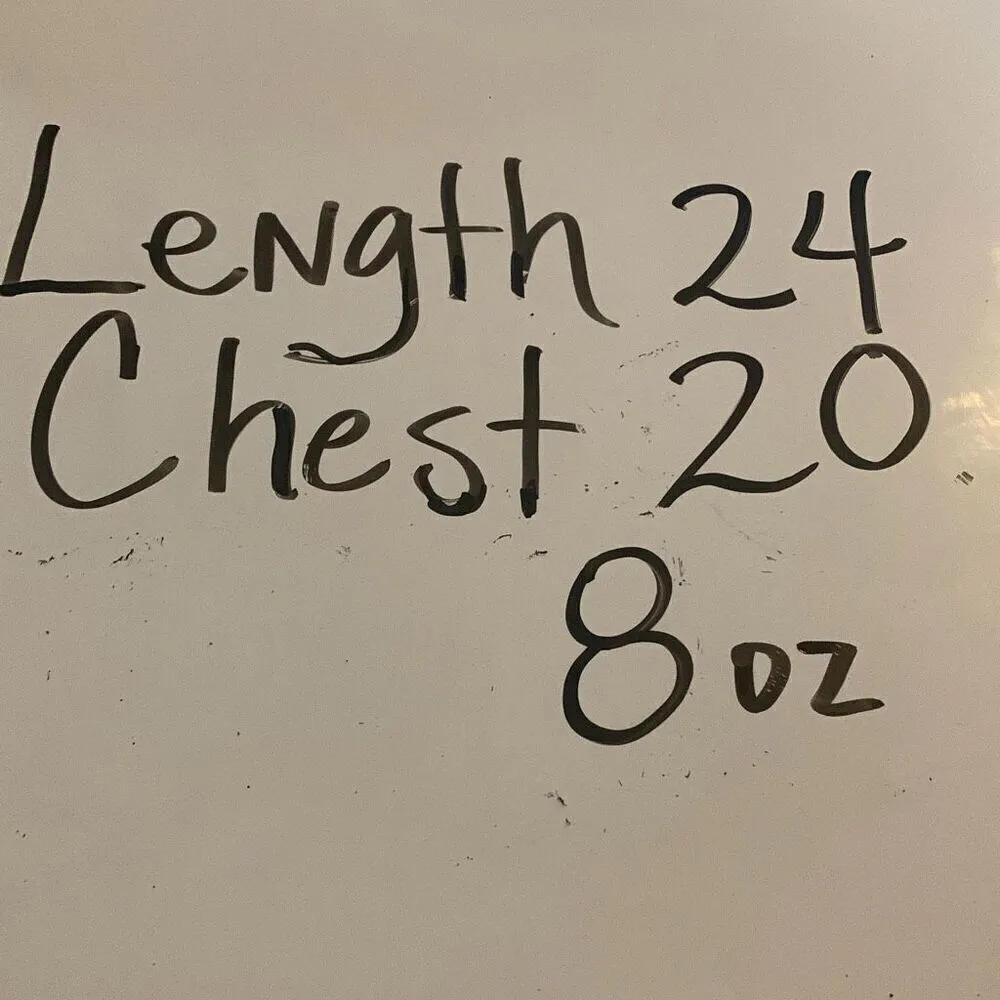 Length 24
Chest 20
8 oz